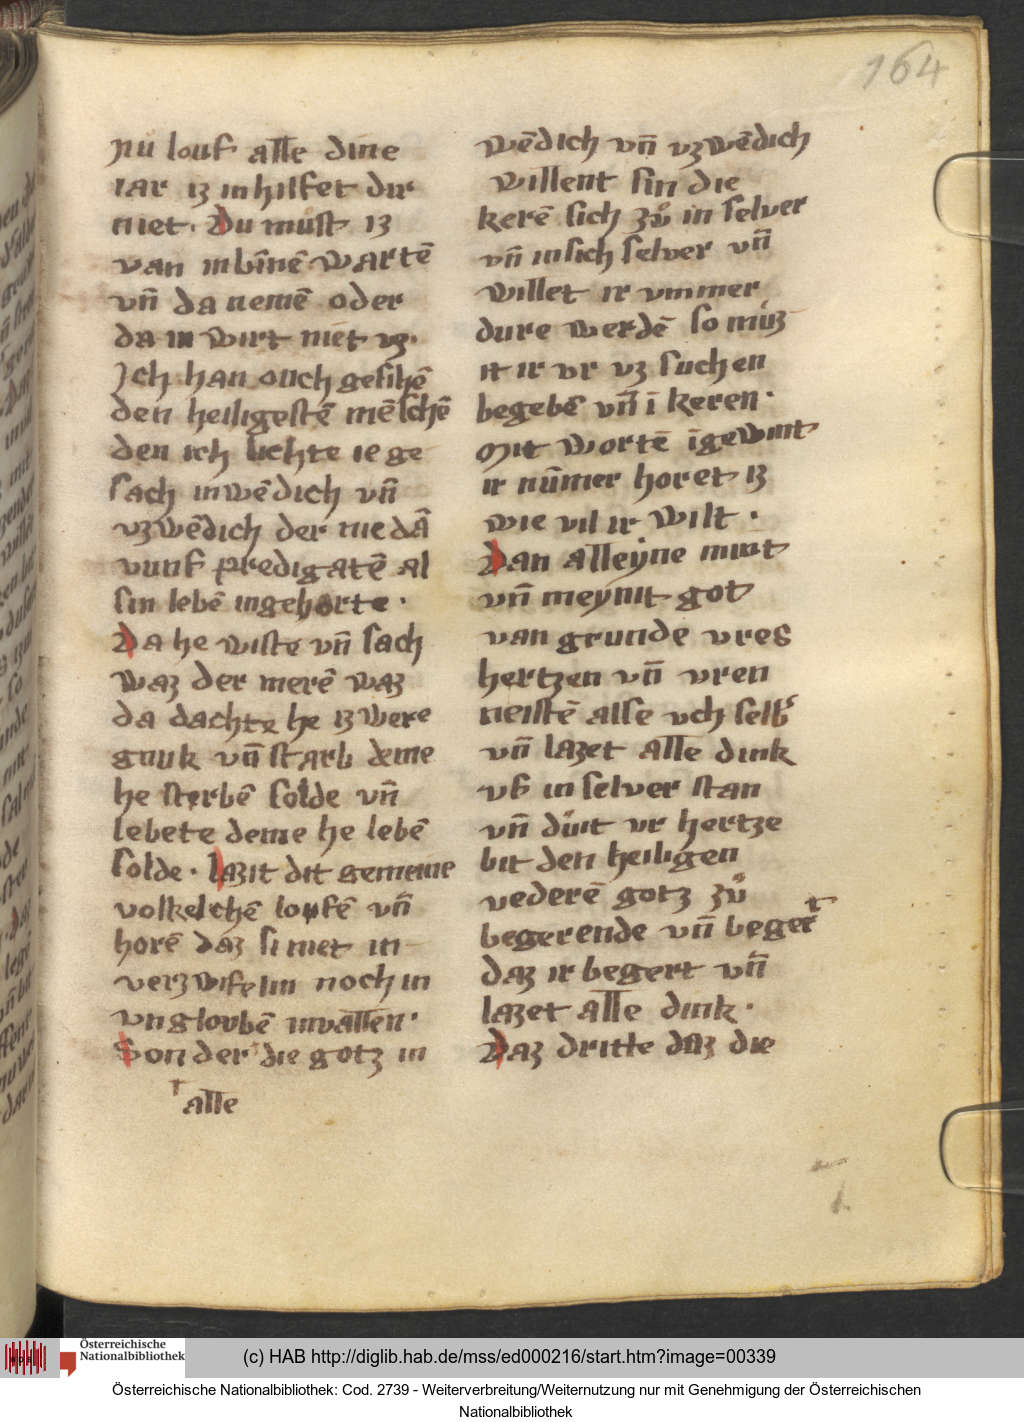 164
nu louf alle dine
iar iz in hilfet dir
niet. Du můst iz
van inbīnē wartē
vn̄ da nemē oder
da in wirt niet vz.
Ich han ouch gesihē
den heiligestē mēschē
den ich lichte ie ge
sach inwēdich vn̄
vzwēdich der nie dā
vunf predigatē al
sin lebē ingehorte.
Da he wiste vn̄ sach
waz der merē waz
da dachte he iz were
gnuk vn̄ starb deme
he sterbē solde vn̄
lebete deme he lebē
solde. lazit dit gemeine
volkelchē loufē vn̄
horē daz si niet in
verzwifelin noch in
vngloubē invallen.
Von der die gotz in
alle
wēdich vn̄ vzwēdich
willent sin die
kerē sich zů in selver
vn̄ in sich selver vn̄
willet ir vmmer
dure werdē so můz
it ir vr vz suchen
begebē vn̄ ī keren.
Mit wortē īgewint
ir nūmer horet iz
wie vil ir wilt.
Dan alleyne mint
vn̄ meynit got
van grunde vres
hertzen vn̄ vren
neistē alse vch selb'
vn̄ lazet alle dink
vf in selver stan
vn̄ důit vr hertze
bit den heiligen
vederē gotz zů
begerende vn̄ begert
daz ir begert vn̄
lazet alle dink.
Daz dritte daz die
Österreichische
Nationalbibliothek
(c) HAB http://diglib.hab.de/mss/ed000216/start.htm?image=00339
Österreichische Nationalbibliothek: Cod. 2739 - Weiterverbreitung/Weiternutzung nur mit Genehmigung der Österreichischen
Nationalbibliothek